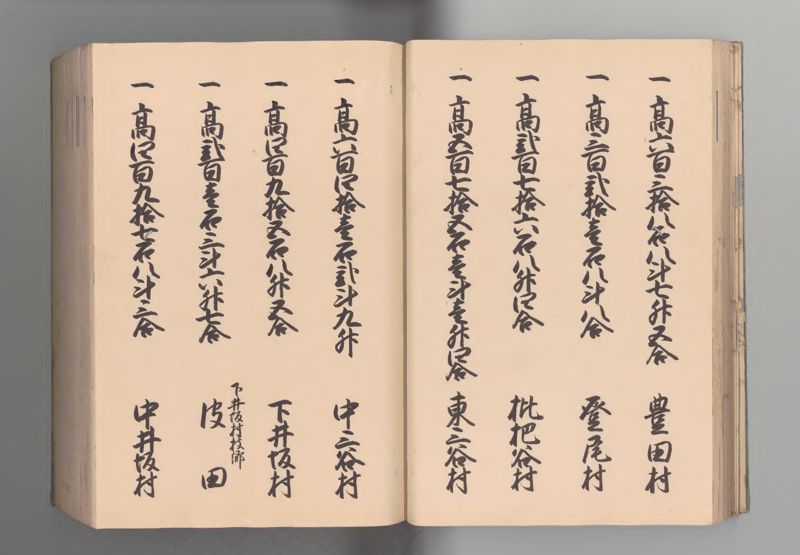 一高六百三拾八石八斗七升五合 豊田村
一高三百弐拾壱石八斗八合 登尾村
一高弐百七拾六石八升四合 枇杷谷村
一高五百七拾五石壱斗壱升四合 東三谷村
一高六百四拾壱石弐斗九升 中三谷村
一高四百九拾五石八升五合 下井坂村
下井坂村枝郷
一高弐百壱石三斗六升七合 皮田
一高四百九拾七石八斗三合 中井坂村